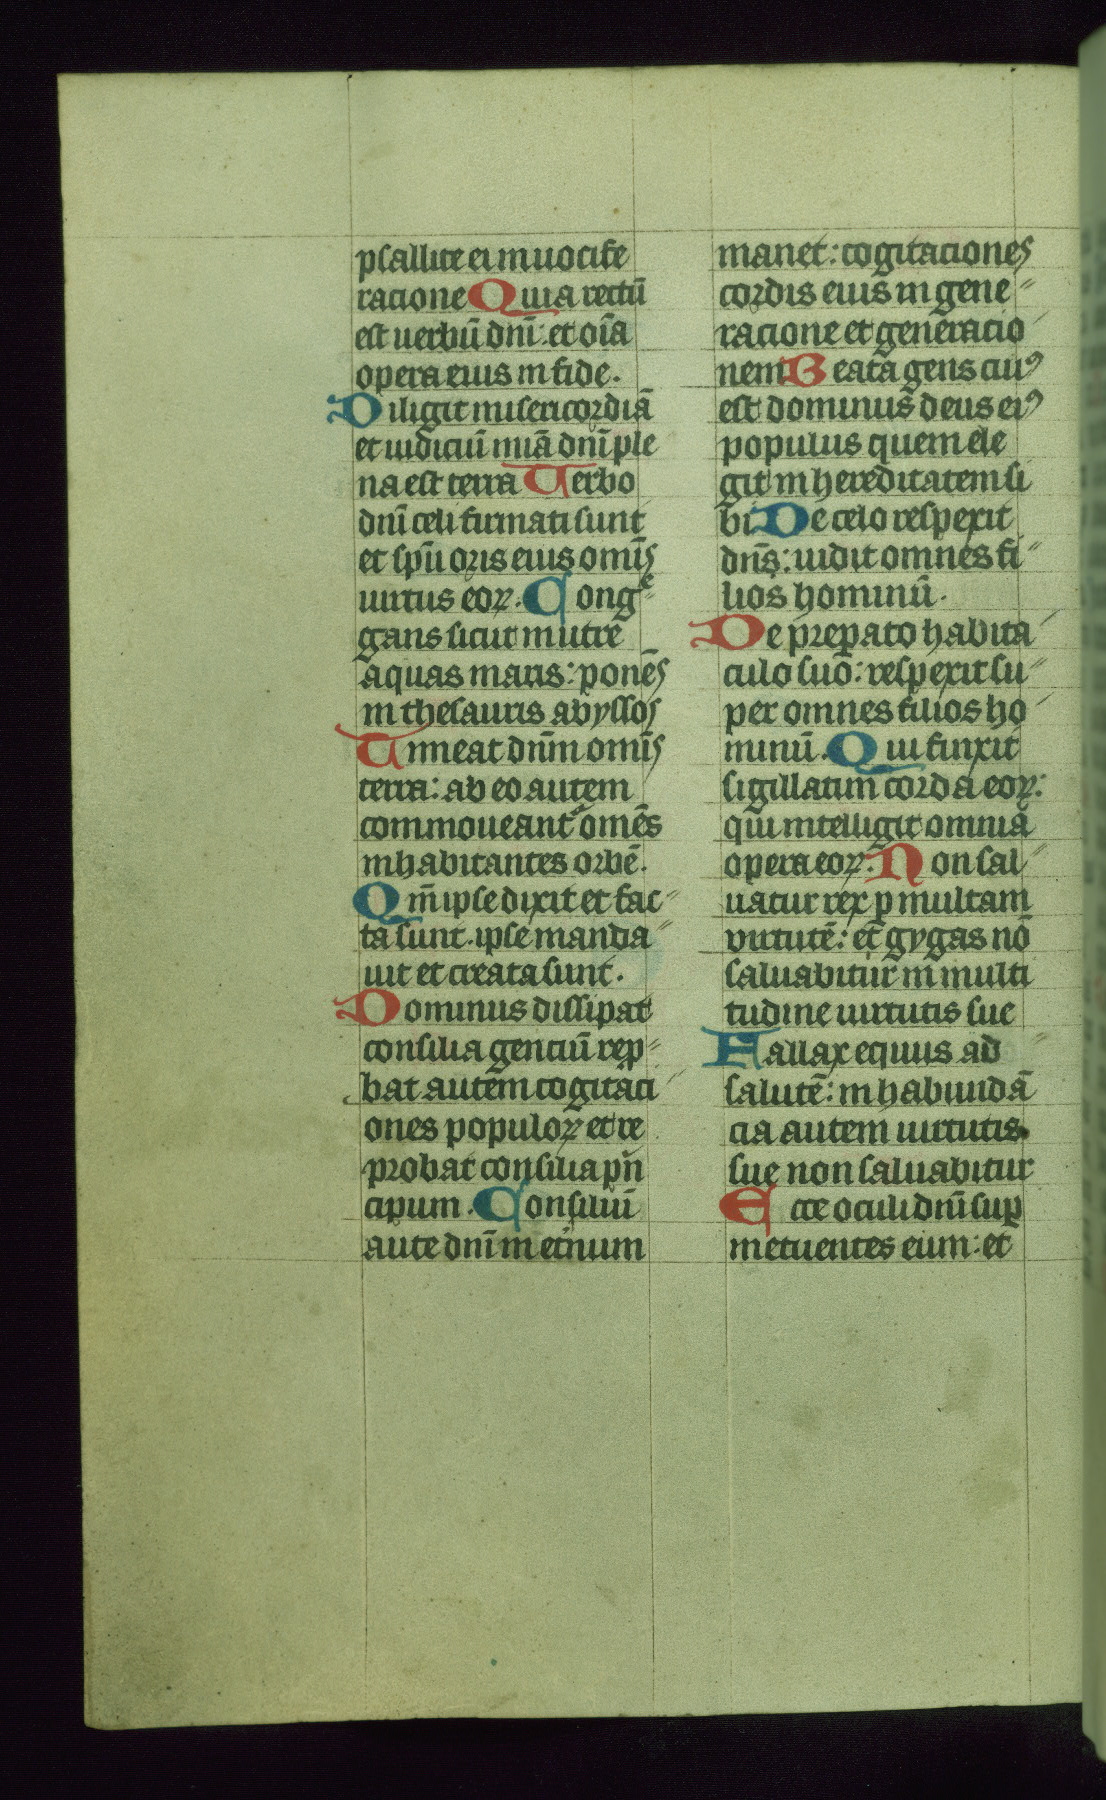 psallite ei in uocife
racione Quia rectū
est uerbū dnī: et oīa
opera eius in fide.
Diligit misericordiā
et iudiciū mīa dnī ple
na est terra Uerbo
dnī celi firmati sunt
et spū oris eius omīs
uirtus eoꝝ. Congͤ
gans sicut in utre
aquas maris: ponēs
in thesauris abyssos
Timeat dnm omīs
terra: ab eo autem
commoueantᷣ omēs
inhabitantes orbē.
Qm̄ ipse dixit et fac-
ta sunt. ipse manda-
uit et creata sunt.
Dominus dissipat
consilia genciū rep-
bat autem cogitaci-
ones populoꝝ et re
probat consilia pͥn
cipum. Consiliū
aute dnī in eternum
manet: cogitaciones
cordis eius in gene-
racione et generacio-
nem Beata gens cuiꝰ
est dominus deus eiꝰ
populus quem ele
git in hereditatem si
bi De celo respexit
dns̄: uidit omnes fi-
lios hominū.
De preꝑato habita-
culo suo: respexit su-
per omnes filios ho-
minū. Qui finxit
sigillatim corda eoꝝ:
qui intelligit omnia
opera eoꝝ. Non sal-
uatur rex ꝑ multam
virtutē: et gygas nō
saluabitur in multi
tudine uirtutis sue
Fallax equus ad
salutē: in habundā
cia autem uirtutis
sue non saluabitur
Ecce oculi dnī suꝑ
metuentes eum: et